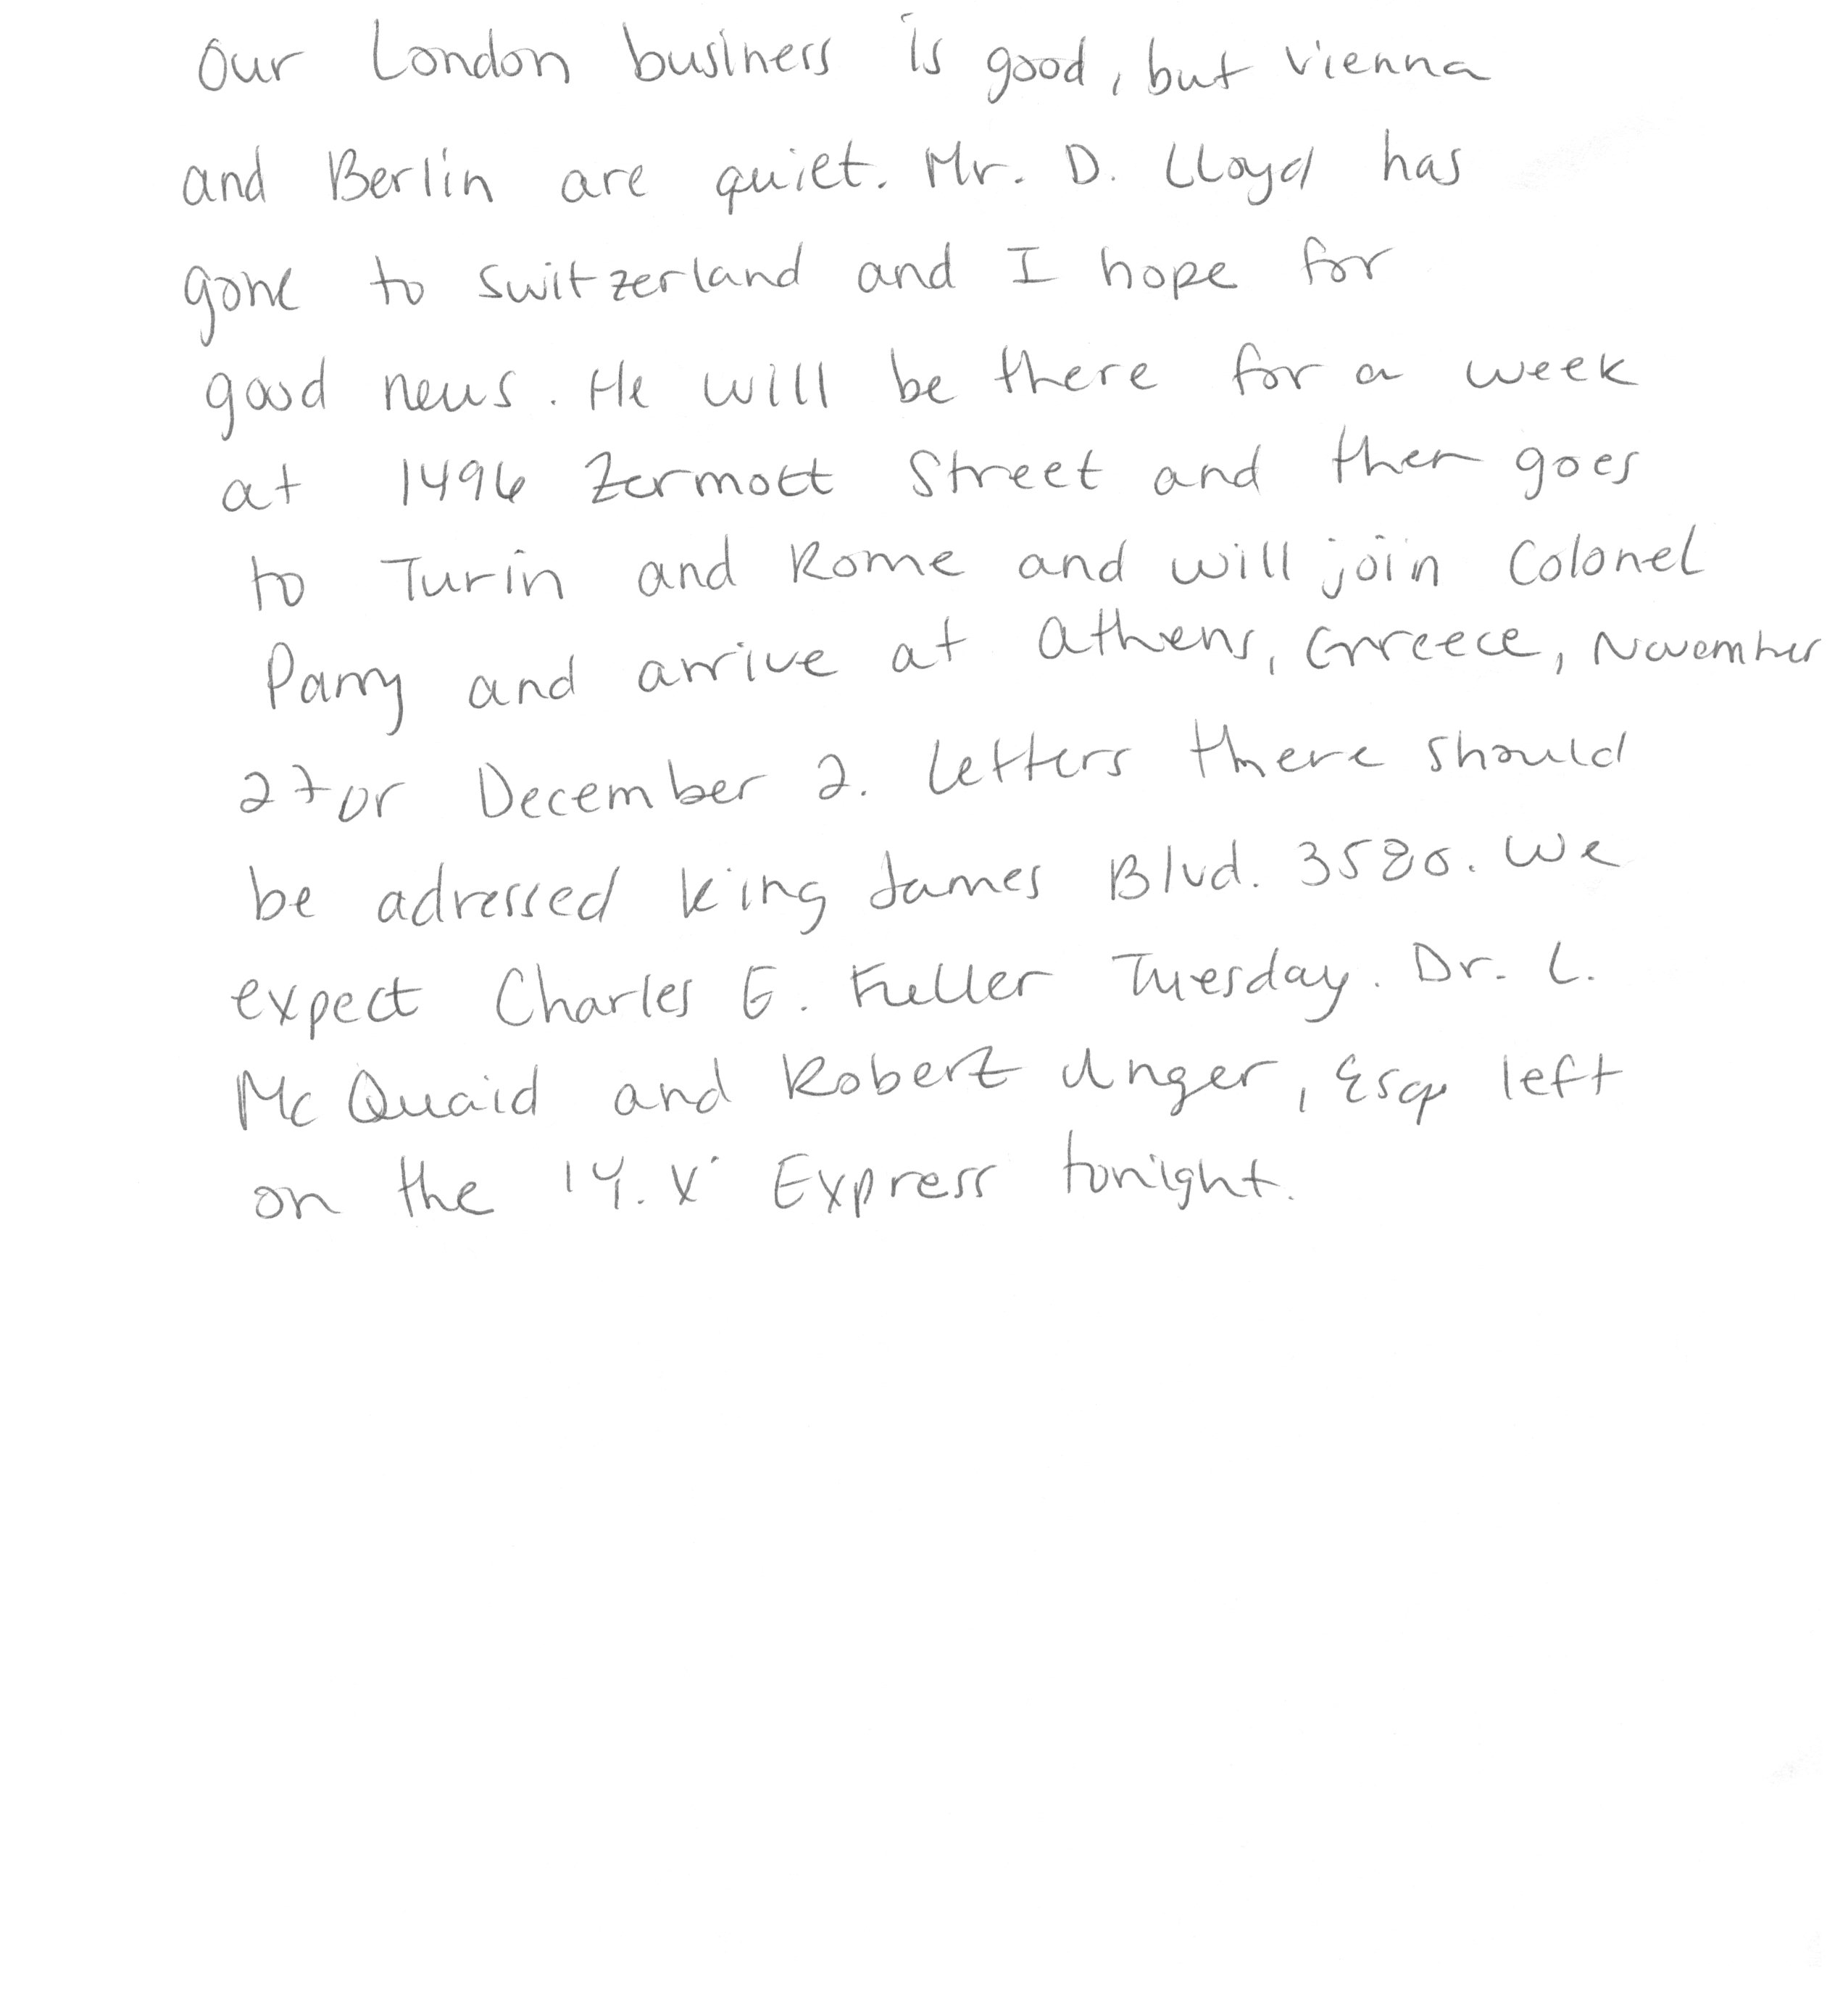 Our London business is good, but vienna
and Berlin are quiet. Mr. D. Lloyd has
gone to switzerland and I hope for
good news. He will be there for a week
at 1496 Zermott Street and then goes
to Turin and Rome and will join Colonel
Parry and arrive at Athens, Greece, November
27 or December 2. Letters there should
be adressed king James Blvd. 3580. We
expect Charles E. Fuller Tuesday. Dr. L.
McQuaid and Robert Unger, Esq left
on the 'Y.X' Express tonight.